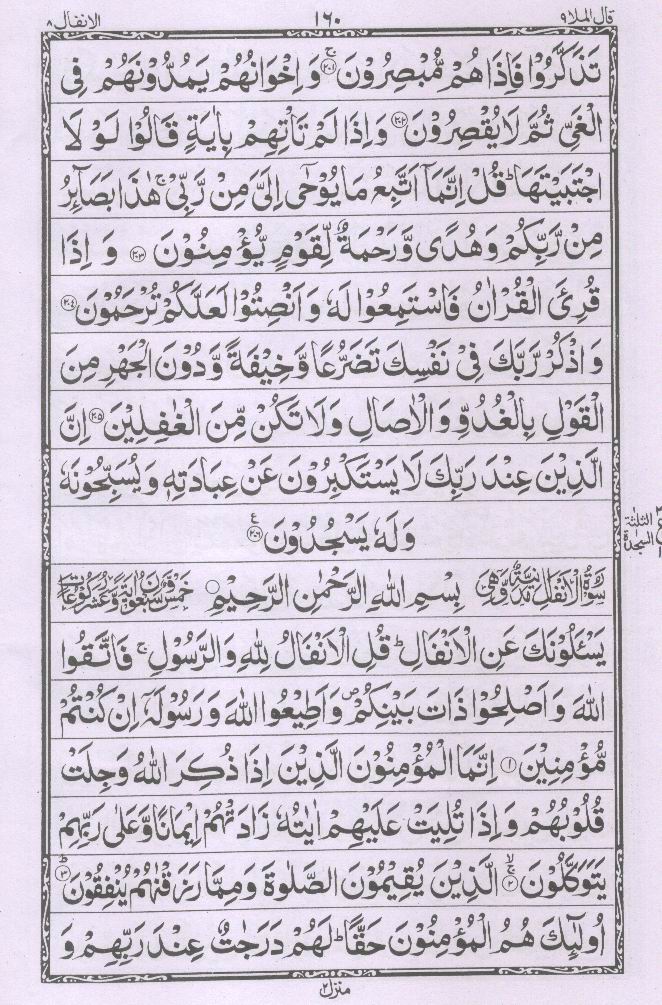 قال الملا ٩ ١٦٠ الانفال ٨
تَذَكَّرُوْا فَاِذَا هُمْ مُّبْصِرُوْنَ ۚ﴿٢٠١﴾ وَ اِخْوَانُهُمْ يَمُدُّوْنَهُمْ فِى
الْغَىِّ ثُمَّ لَا يُقْصِرُوْنَ ﴿٢٠٢﴾ وَ اِذَا لَمْ تَاْتِهِمْ بِاٰيَةٍ قَالُوْا لَوْ لَا
اجْتَبَيْتَهَا ؕ قُلْ اِنَّمَاۤ اَتَّبِعُ مَا يُوْحٰۤى اِلَىَّ مِنْ رَّبِّىْ ۚ هٰذَا بَصَآئِرُ
مِنْ رَّبِّكُمْ وَ هُدًى وَّ رَحْمَةٌ لِّقَوْمٍ يُّؤْمِنُوْنَ ﴿٢٠٣﴾ وَ اِذَا
قُرِئَ الْقُرْاٰنُ فَاسْتَمِعُوْا لَهٗ وَ اَنْصِتُوْا لَعَلَّكُمْ تُرْحَمُوْنَ ﴿٢٠٤﴾
وَ اذْكُرْ رَّبَّكَ فِىْ نَفْسِكَ تَضَرُّعًا وَّ خِيْفَةً وَّ دُوْنَ الْجَهْرِ مِنَ
الْقَوْلِ بِالْغُدُوِّ وَ الْاٰصَالِ وَ لَا تَكُنْ مِّنَ الْغٰفِلِيْنَ ﴿٢٠٥﴾ اِنَّ
الَّذِيْنَ عِنْدَ رَبِّكَ لَا يَسْتَكْبِرُوْنَ عَنْ عِبَادَتِهٖ وَ يُسَبِّحُوْنَهٗ
وَ لَهٗ يَسْجُدُوْنَ ﴿٢٠٦﴾ ع
الثلثة
السجدة
سورة الانفال مدنية وهى بِسْمِ اللهِ الرَّحْمٰنِ الرَّحِيْمِ خمس وسبعون اية وعشر ركوعات
يَسْـَٔلُوْنَكَ عَنِ الْاَنْفَالِ ؕ قُلِ الْاَنْفَالُ لِلّٰهِ وَ الرَّسُوْلِ ۚ فَاتَّقُوا
اللّٰهَ وَ اَصْلِحُوْا ذَاتَ بَيْنِكُمْ ۪ وَ اَطِيْعُوا اللّٰهَ وَ رَسُوْلَهٗۤ اِنْ كُنْتُمْ
مُّؤْمِنِيْنَ ﴿١﴾ اِنَّمَا الْمُؤْمِنُوْنَ الَّذِيْنَ اِذَا ذُكِرَ اللّٰهُ وَجِلَتْ
قُلُوْبُهُمْ وَ اِذَا تُلِيَتْ عَلَيْهِمْ اٰيٰتُهٗ زَادَتْهُمْ اِيْمَانًا وَّ عَلٰى رَبِّهِمْ
يَتَوَكَّلُوْنَ ۚ﴿٢﴾ الَّذِيْنَ يُقِيْمُوْنَ الصَّلٰوةَ وَ مِمَّا رَزَقْنٰهُمْ يُنْفِقُوْنَ ؕ﴿٣﴾
اُولٰٓئِكَ هُمُ الْمُؤْمِنُوْنَ حَقًّا ؕ لَهُمْ دَرَجٰتٌ عِنْدَ رَبِّهِمْ وَ
منزل ٢